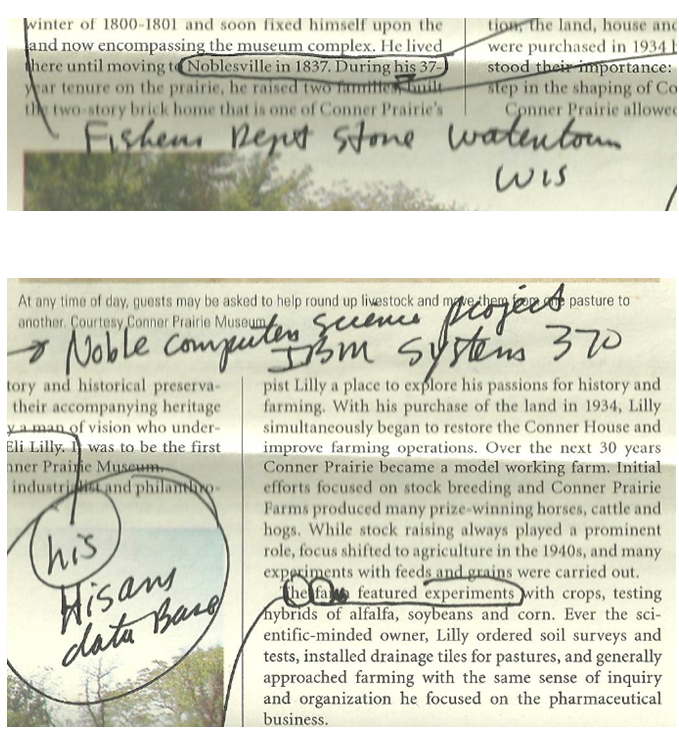 winter of 1800-1801 and soon fixed himself upon the
land now encompassing the museum complex. He lived
there until moving to Noblesville in 1837. During his 37-
year tenure on the prairie, he raised two families, built
the two-story brick home that is one of Conner Prairie's
tion, the land, house and
were purchased in 1934 b
stood their importance:
step in the shaping of Co
Conner Prairie allowed
Fishers Depot stone watertown
WIS
At any time of day, guests may be asked to help round up livestock and move them from one pasture to
another. Courtesy Conner Prairie Museum.
Noble computer science project
IBM Systems 370
tory and historical preserva-
their accompanying heritage
y a man of vision who under-
Eli Lilly. It was to be the first
nner Prairie Museum.
industrialist and philanthro-
his
Hisans
data Base
pist Lilly a place to explore his passions for history and
farming. With his purchase of the land in 1934, Lilly
simultaneously began to restore the Conner House and
improve farming operations. Over the next 30 years
Conner Prairie became a model working farm. Initial
efforts focused on stock breeding and Conner Prairie
Farms produced many prize-winning horses, cattle and
hogs. While stock raising always played a prominent
role, focus shifted to agriculture in the 1940s, and many
experiments with feeds and grains were carried out.
The farm featured experiments with crops, testing
hybrids of alfalfa, soybeans and corn. Ever the sci-
entific-minded owner, Lilly ordered soil surveys and
tests, installed drainage tiles for pastures, and generally
approached farming with the same sense of inquiry
and organization he focused on the pharmaceutical
business.